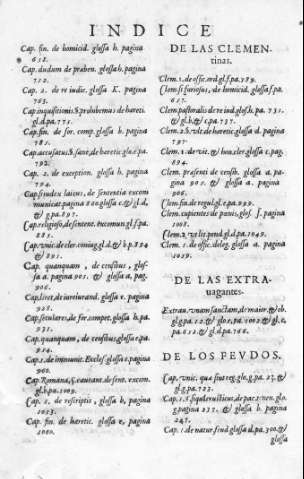 INDICE
Cap. fin. de homicid. glossa h. pagina
638.
Cap. dudum de praben. glossa h. pagina
712.
Cap. 2. de re iudic. glossa K. pagina
763.
Cap. inquisitionis §. prohibemus de hareti.
gl. d. pa. 775.
Cap. fin. de for. comp. glossa h. pagina
785.
Cap. accusatus §. sane, de haretic. glo. e. pa.
792.
Cap. 2. de exception. glossa h. pagina
794.
Cap. si iudex laicus, de sententia excom
municat. pagina 880. glossa c. & gl. d,
& g. pa. 897.
Cap. religioso, de sentent. excomun. gl. f. pa.
885.
Cap. vnic. de cler. coniug. gl. d. & b p. 894
& 895.
Cap. quanquam, de censibus, glos-
sa a. pagina 905. & glossa a, pag.
906.
Cap. licet, de iureiurand. glossa e. pagina
928.
Cap. seculares, de for. compet. glossa h. pa.
931.
Cap. quanquam, de censibus, glossa e. pa.
914.
Cap. 1. de immunit. Eccles. glossa e. pagina
960.
Cap. Romana, §. caueant. de sent. excom.
gl. h. pa. 1009.
Cap. 2. de rescriptis, glossa b, pagina
1023.
Cap. fin. de haretic. glossa e, pagina
1060.
DE LAS CLEMEN-
tinas.
Clem. 1. de offic. ord. gl. f. pa. 589.
Clem. si furiosus, de homicid. glossa f. pa.
637.
Clem. pastoralis de re iud. glos. h. pa. 731.
& gl. b. & c. pa. 737.
Clem. 2. §. vlt. de haretic. glossa d. pagina
797
Clem. 1. de vit. & hon. cler. glossa c. pag.
894.
Clem. prasenti de censib. glossa a. pa-
gina 905. & glossa a. pagina
906.
Clem. fin. de regul. gl. e. pa. 999.
Clem. cupientes de pœnis, glos. J. pagina
1008.
Clem. 2. vt lit. pend. gl. d. pa. 1049.
Clem. 1. de offic. deleg. glossa a. pagina
1059.
DE LAS EXTRA-
uagantes.
Extrau. vnam sanctam, de maior. & ob.
gl. g. pa. 12. & glo. c, pa. 1002. & gl. c,
pa. 612. & gl. d. pa. 766.
DE LOS FEVDOS.
Cap. vnic. qua sint reg. glo. g. pa. 27. &
gl. g. pa. 223.
Cap. 1. §. si quis rusticus, de pac. ten. glo.
g. pagina 237. & glossa h. pagina
247.
Cap. 1. de natur. feud. glossa d. pa. 300. &
glossa